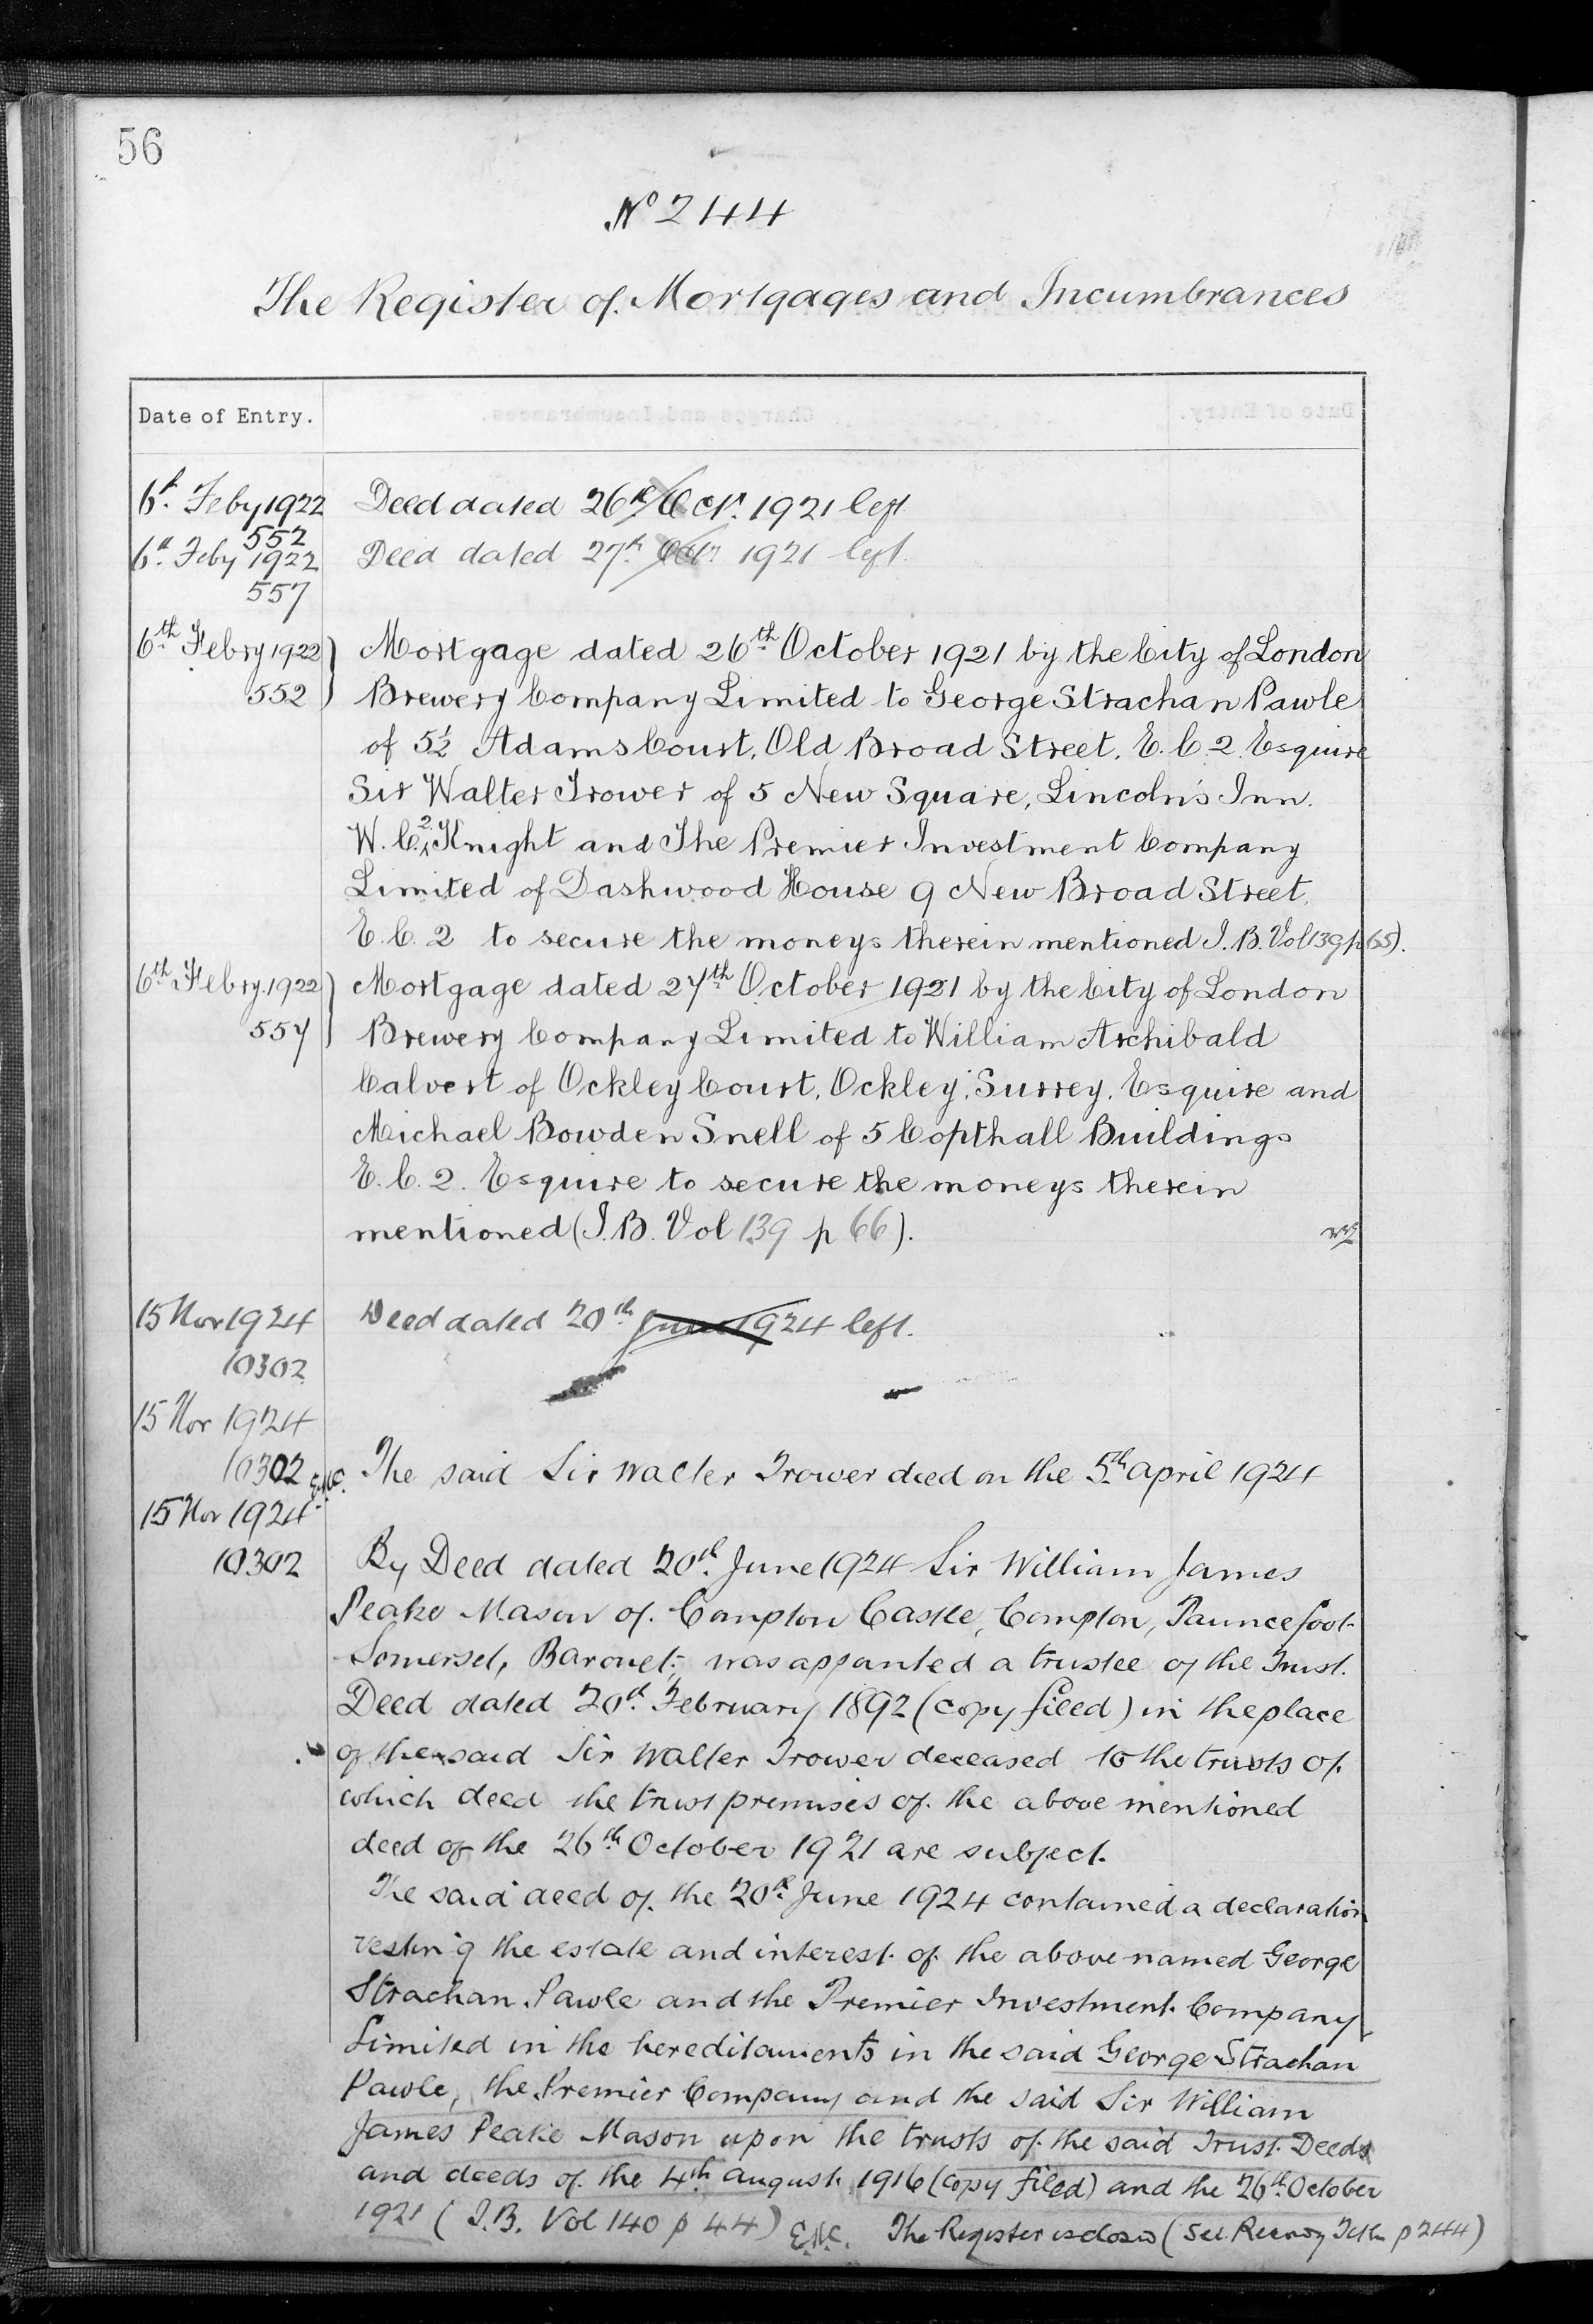 56
No 244
The Register of Mortgages and Incumbrances
Date of Entry.
6th Feby 1922 Deed dated 26th Octr. 1921 left
552
6th Feby 1922 Deed dated 27th Octr. 1921 left.
557
6th Febry 1922 Mortgage dated 26th October 1921 by the City of London
552 Brewery Company Limited to George Strachan Pawle
of 5½ Adams Court, Old Broad Street, E.C.2. Esquire
Sir Walter Trower of 5 New Square, Lincoln's Inn.
W.C.2. Knight and The Premier Investment Company
Limited of Dashwood House 9 New Broad Street,
E.C.2 to secure the moneys therein mentioned I.B. Vol 139 p 65).
6th Febry. 1922 Mortgage dated 27th October 1921 by the City of London
557 Brewery Company Limited to William Archibald
Calvert of Ockley Court, Ockley, Surrey, Esquire and
Michael Bowden Snell of 5 Copthall Buildings
E.C.2. Esquire to secure the moneys therein
mentioned (I.B. Vol 139 p 66).
15 Nov 1924 Deed dated 20th June 1924 left.
10302
15 Nov 1924
10302 The said Sir Walter Trower died on the 5th April 1924
15 Nov 1924
10302 By Deed dated 20th June 1924 Sir William James
Peake Mason of Compton Castle, Compton, Pauncefoot
Somerset, Baronet, was appointed a trustee of the Trust
Deed dated 20th February 1892 (copy filed) in the place
of the said Sir Walter Trower deceased to the trusts of
which deed the trust premises of the above mentioned
deed of the 26th October 1921 are subject.
The said deed of the 20th June 1924 contained a declaration
vesting the estate and interest of the above named George
Strachan Pawle and the Premier Investment Company
Limited in the hereditaments in the said George Strachan
Pawle, the Premier Company and the said Sir William
James Peake Mason upon the trusts of the said Trust Deeds
and deeds of the 4th August 1916 (copy filed) and the 26th October
1921 (I.B. Vol 140 p 44) E.N.C. The Register is closed (See p 244)